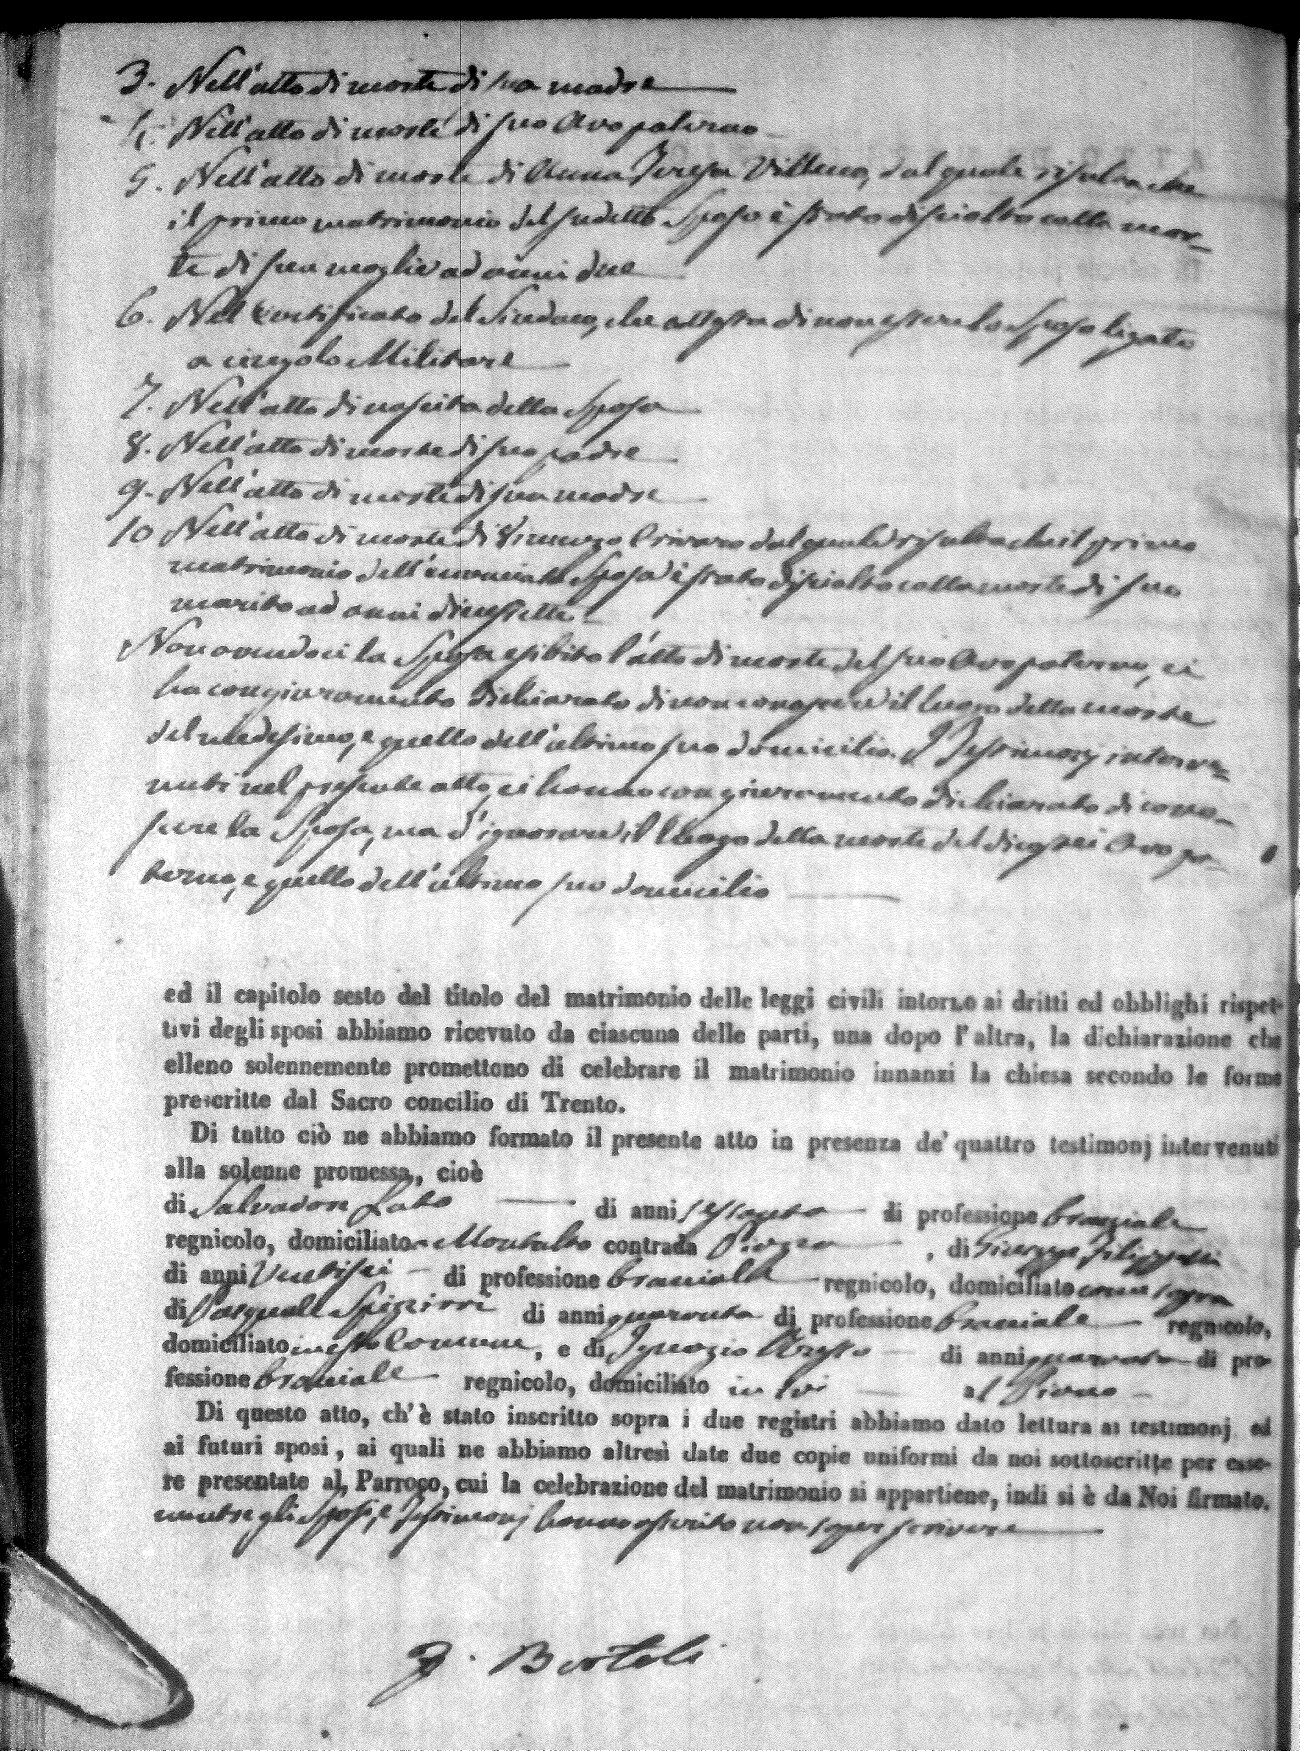 3. Nell'atto di morte di sua madre
4. Nell'atto di morte di suo Avo paterno
5. Nell'atto di morte di Anna Teresa, dal quale risulta che
il primo matrimonio del sudetto Sposo è stato disciolto colla mor-
te di sua moglie ad anni due
6. Nel certificato del Sindaco, che attesta di non essere lo Sposo ligato
a cingolo Militare
7. Nell'atto di nascita della Sposa
8. Nell'atto di morte di suo padre
9. Nell'atto di morte di sua madre
10 Nell'atto di morte di Vincenzo dal quale risulta che il primo
matrimonio dell'enunciata Sposa è stato disciolto colla morte di suo
marito ad anni diciassette
Non avendoci la Sposa esibito l'atto di morte del suo Avo paterno, ci
ha con giuramento dichiarato di non conoscere il luogo della morte
del medesimo, e quello dell'ultimo suo domicilio. I Testimonj interve-
nuti nel presente atto, ci hanno con giuramento dichiarato di cono-
scere la Sposa, ma d'ignorare il luogo della morte del di costei Avo pa-
terno, e quello dell'ultimo suo domicilio
ed il capitolo sesto del titolo del matrimonio delle leggi civili intorno ai dritti ed obblighi rispet-
tivi degli sposi abbiamo ricevuto da ciascuna delle parti, una dopo l'altra, la dichiarazione che
elleno solennemente promettono di celebrare il matrimonio innanzi la chiesa secondo le forme
prescritte dal Sacro concilio di Trento.
Di tutto ciò ne abbiamo formato il presente atto in presenza de' quattro testimonj intervenuti
alla solenne promessa, cioè
di Salvadore Lato di anni sessanta di professione bracciale
regnicolo, domiciliato a Montalto contrada, di Giuseppe Filippelli
di anni Ventisei di professione bracciale regnicolo, domiciliato come sopra
di Pasquale Spizzirri di anni quaranta di professione bracciale regnicolo,
domiciliato in esto Comune, e di Ignazio di anni quaranta di pro-
fessione bracciale regnicolo, domiciliato in ivi
Di questo atto, ch'è stato inscritto sopra i due registri abbiamo dato lettura ai testimonj ed
ai futuri sposi, ai quali ne abbiamo altresì date due copie uniformi da noi sottoscritte per esse-
re presentate al Parroco, cui la celebrazione del matrimonio si appartiene, indi si è da Noi firmato.
mentre gli Sposi, e Testimonj hanno asserito non saper scrivere